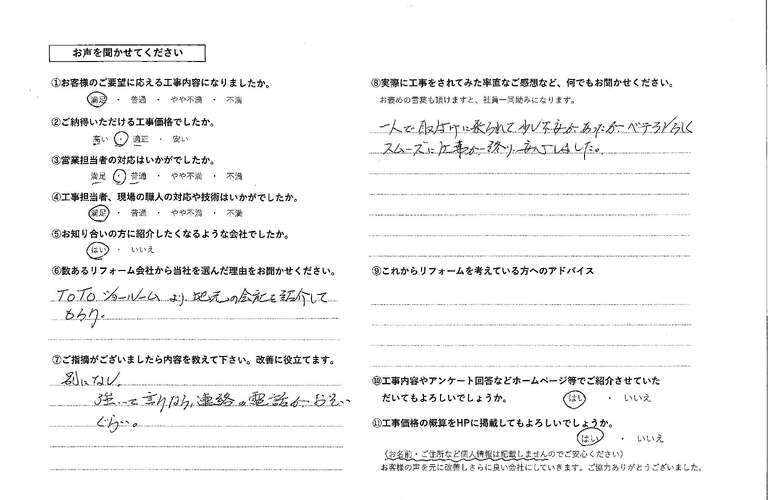 お声を聞かせてください
①お客様のご要望に応える工事内容になりましたか。
満足 ・ 普通 ・ やや不満 ・ 不満
②ご納得いただける工事価格でしたか。
高い ・ 適正 ・ 安い
③営業担当者の対応はいかがでしたか。
満足 ・ 普通 ・ やや不満 ・ 不満
④工事担当者、現場の職人の対応や技術はいかがでしたか。
満足 ・ 普通 ・ やや不満 ・ 不満
⑤お知り合いの方に紹介したくなるような会社でしたか。
はい ・ いいえ
⑥数あるリフォーム会社から当社を選んだ理由をお聞かせください。
TOTOショールームより地元の会社を紹介して
もらう。
⑦ご指摘がございましたら内容を教えて下さい。改善に役立てます。
別になし。
強いて言うなら、連絡の電話がおそい
ぐらい。
⑧実際に工事をされてみた率直なご感想など、何でもお聞かせください。
お褒めの言葉も頂けますと、社員一同励みになります。
一人で取付けに来られて少し不安があったがベテランらしく
スムーズに工事が終り、安心しました。
⑨これからリフォームを考えている方へのアドバイス
⑩工事内容やアンケート回答などホームページ等でご紹介させていた
だいてもよろしいでしょうか。 はい ・ いいえ
⑪工事価格の概算をHPに掲載してもよろしいでしょうか。
はい ・ いいえ
(お名前・ご住所など個人情報は記載しませんのでご安心ください)
お客様の声を元に改善しさらに良い会社にしていきます。ご協力ありがとうございました。